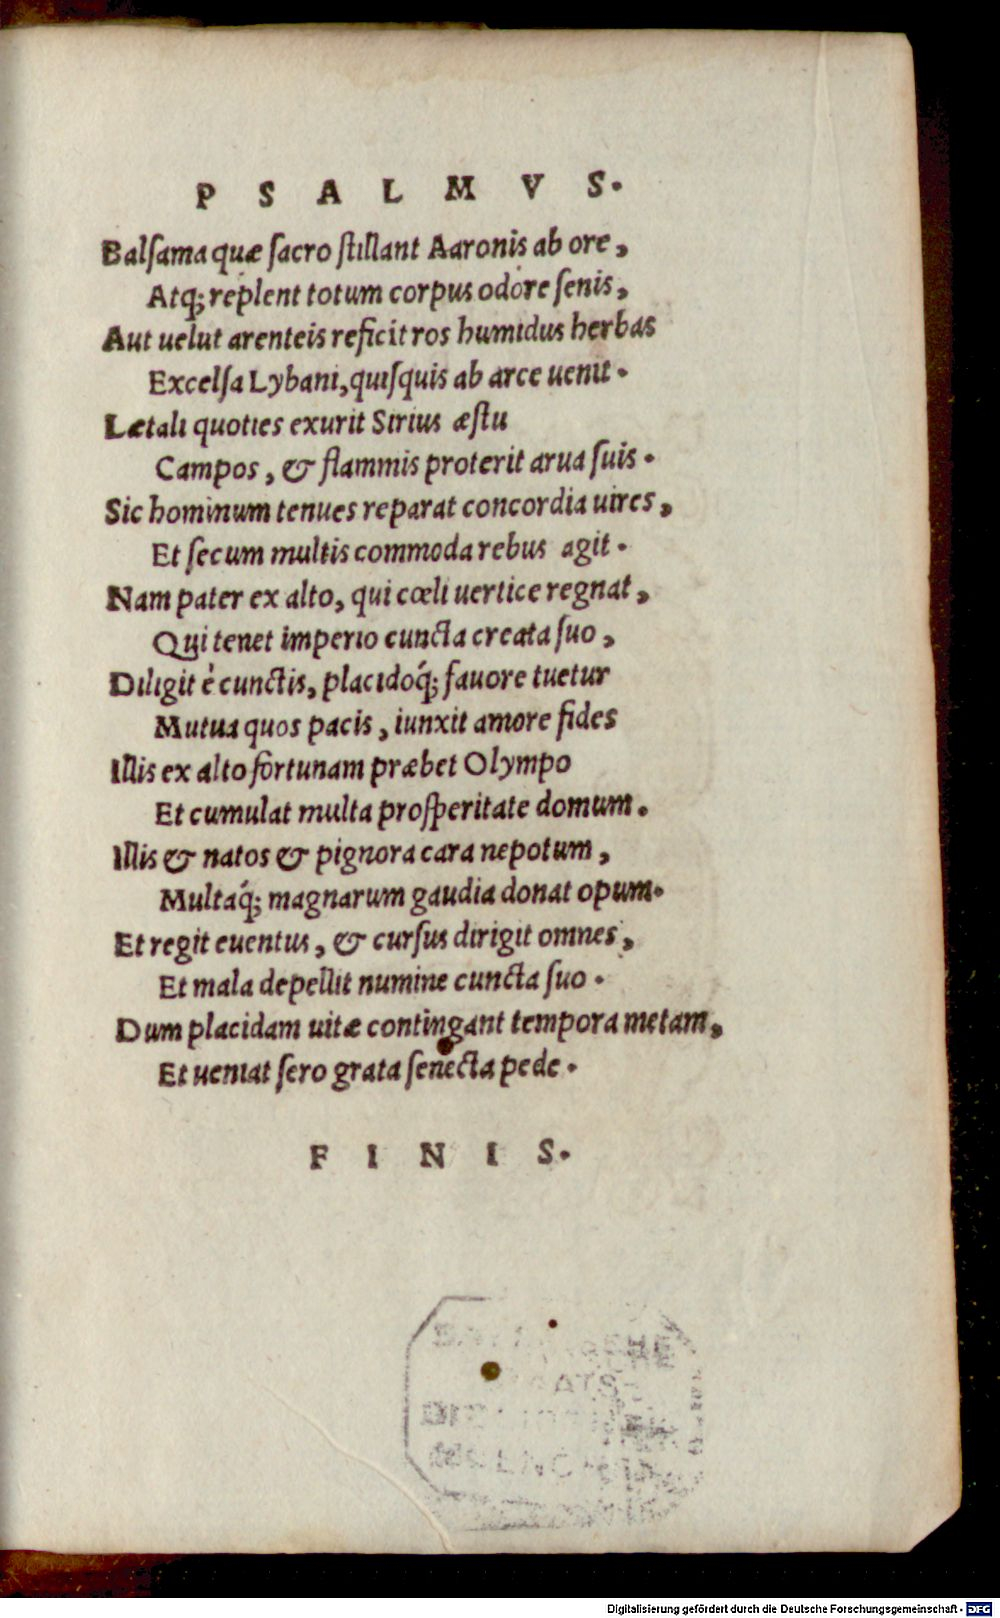 P S A L M V S.
Balſama quæ ſacro ſtillant Aaronis ab ore,
Atq; replent totum corpus odore ſenis,
Aut uelut arenteis reficit ros humidus herbas
Excelſa Lybani, quiſquis ab arce uenit.
Lætali quoties exurit Sirius æſtu
Campos, & flammis proterit arua ſuis.
Sic hominum tenues reparat concordia uires,
Et ſecum multis commoda rebus agit.
Nam pater ex alto, qui cœli uertice regnat,
Qui tenet imperio cuncta creata ſuo,
Diligit è cunctis, placidoq́; fauore tuetur
Mutua quos pacis, iunxit amore fides
Illis ex alto fortunam præbet Olympo
Et cumulat multa proſperitate domum.
Illis & natos & pignora cara nepotum,
Multaq́; magnarum gaudia donat opum.
Et regit euentus, & curſus dirigit omnes,
Et mala depellit numine cuncta ſuo.
Dum placidam uitæ contingant tempora metam,
Et ueniat ſero grata ſenecta pede.
F I N I S.
Digitalisierung gefördert durch die Deutsche Forschungsgemeinschaft - DFG